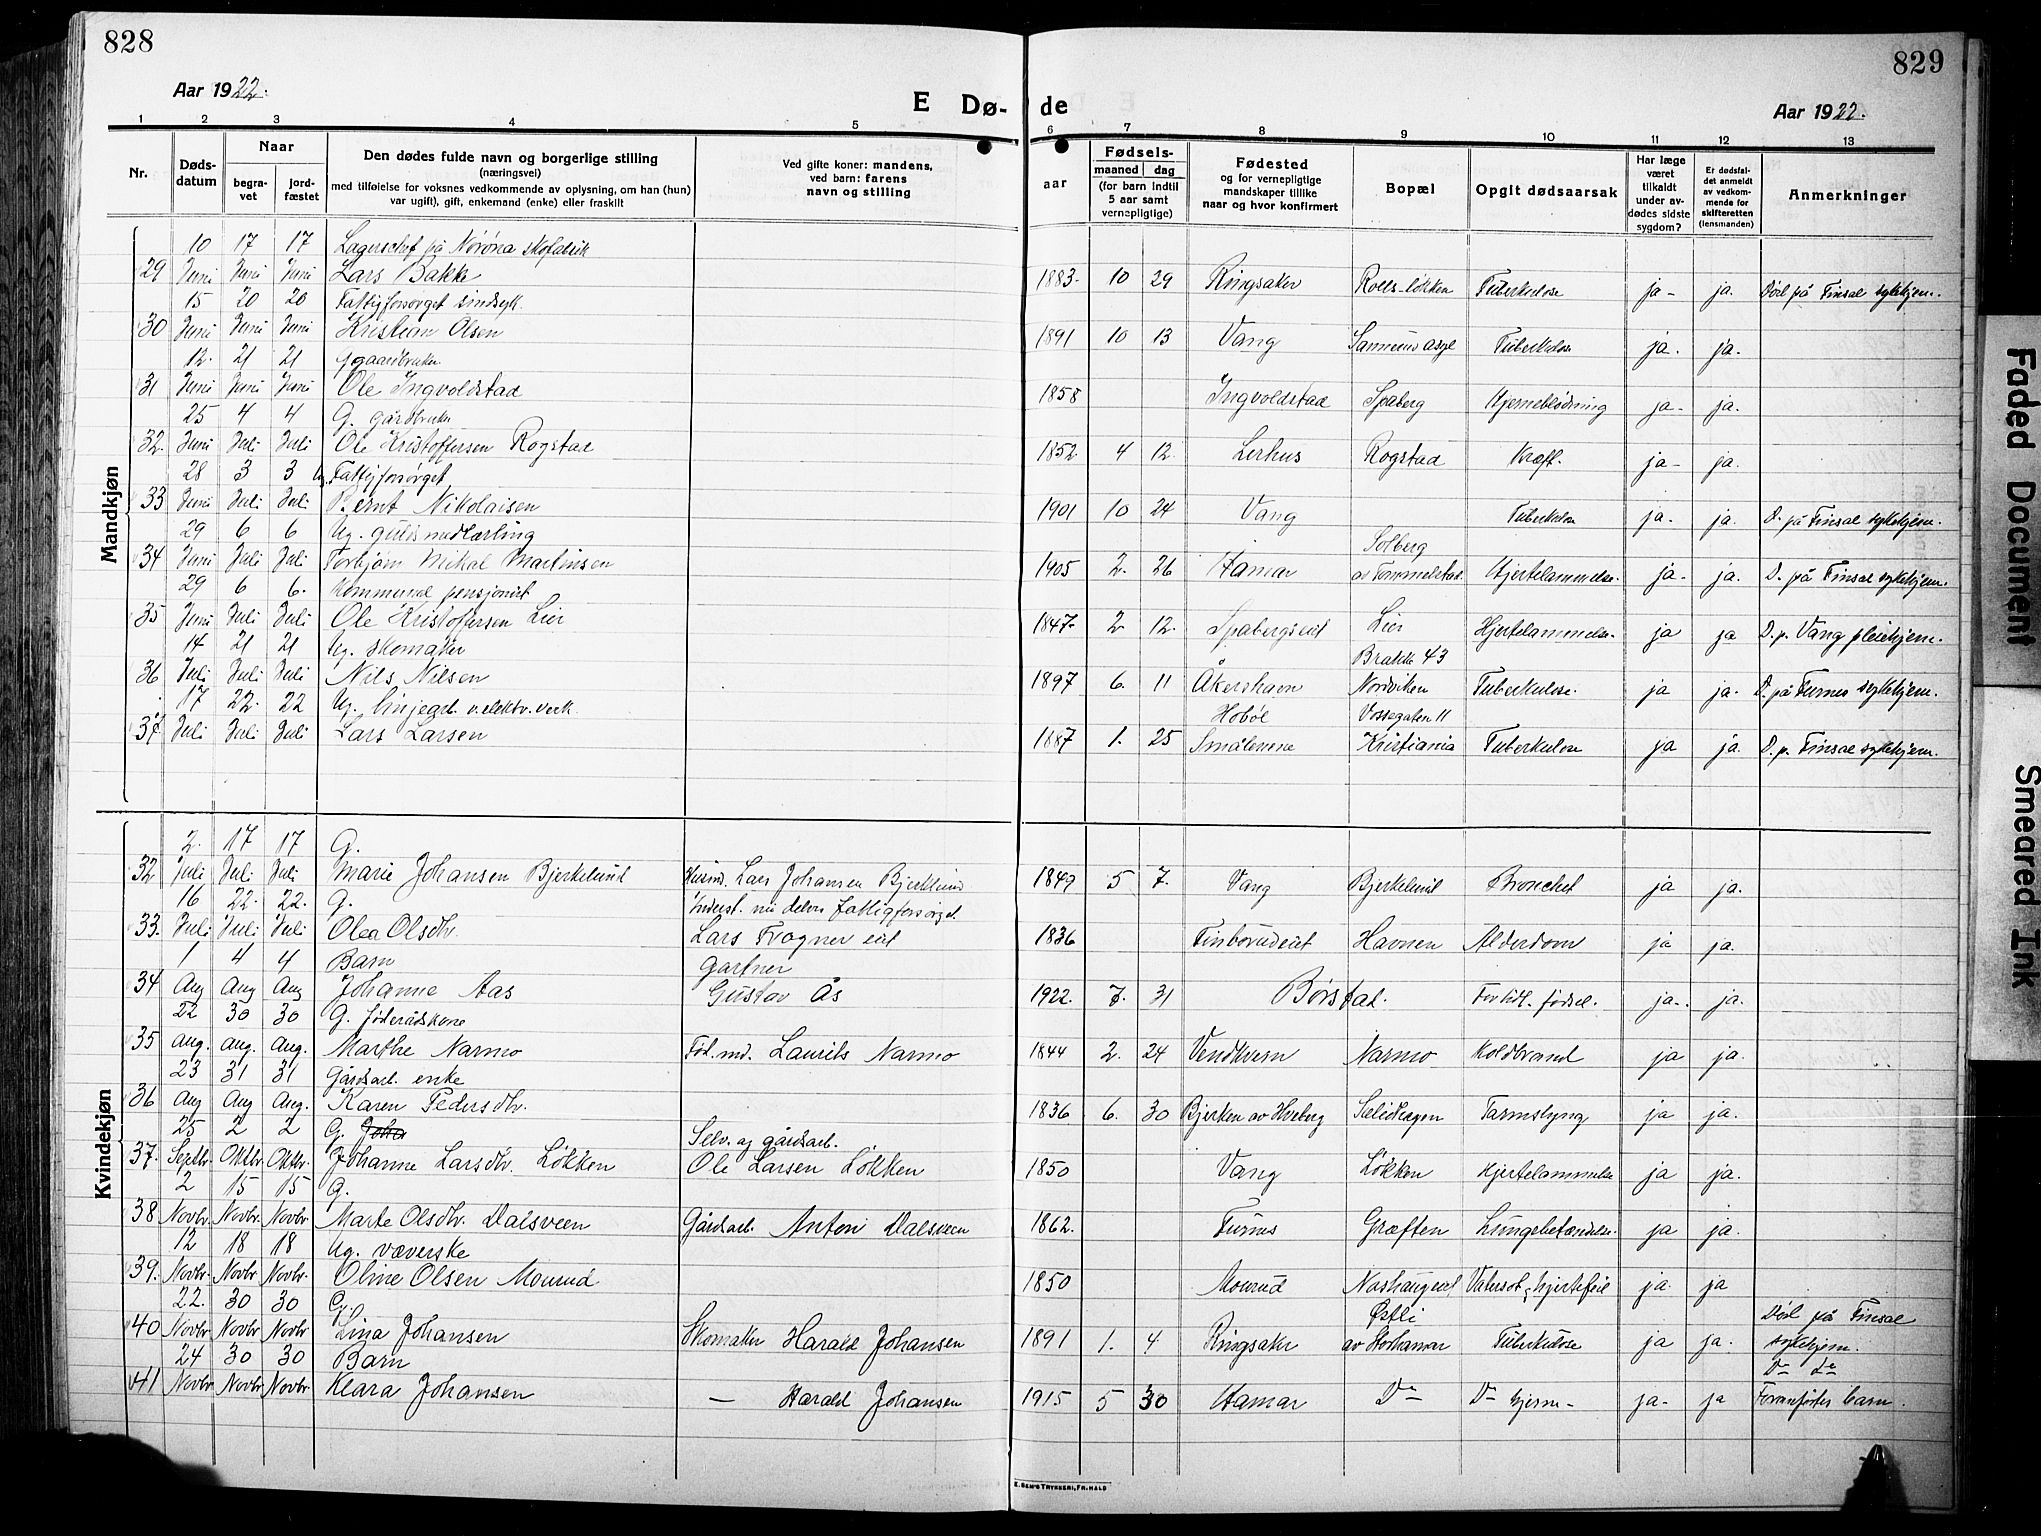 828
829
Aar 1922.
E Dø-
de
Aar 1922.
1 2 3 4 5 6 7 8 9 10 11 12 13
Nr.
Døds-
datum
Naar
begra-
vet
jord-
fæstet
Den dødes fulde navn og borgerlige stilling
(næringsvei)
med tilføielse for voksnes vedkommende av oplysning, om han (hun)
var ugift), gift, enkemand (enke) eller fraskilt
Ved gifte koner: mandens,
ved barn: farens
navn og stilling
Fødsels-
aar
maaned dag
(for barn indtil
5 aar samt
vernepligtige)
Fødested
og for vernepligtige
mandskaper tillike
naar og hvor konfirmert
Bopæl
Opgit dødsaarsak
Har læge
været
tilkaldt
under av-
dødes sidste
sygdom?
Er dødsfal-
det anmeldt
av vedkom-
mende for
skifteretten
(lensmanden)
Anmerkninger
Mandkjøn
10 17 17 Lagerschef på Nørøna skofabrik
29 Juni Juni Juni Lars Bakke 1883. 10 29 Ringsaker Tuberkulose ja- ja. Død på Finsal sykehjem.
15 20 20 Fattigforsørget sindsyk.
30 Juni Juni Juni Kristian Olsen 1891 10 13 Vang Sannerud asyl Tuberkulose ja. ja.
12. 21 21 gaardbruker
31 Juni Juni Juni Ole Ingvoldstad 1858 Ingvoldstad Spaberg Hjerneblødning ja- ja.
25 4 4 G. gårdbruker
32. Juni Juli Juli Ole Kristoffersen Rogstad 1852. 4 12. Lerhus Rogstad Kræft. ja- ja.
28 3 3 Ug. Fattigforsørget
33 Juni Juli Juli Bernt Nikolaisen 1901 10 24 Vang Tuberkulose ja. ja. D. på Finsal sykehjem.
29 6 6 Ug. gulsmedlærling Solberg
34 Juni Juli Juli Torbjørn Mikal Martinsen 1905 2. 26 Hamar av Tommelstad. Hjertelammelse. ja- ja. D. på Finsal sykehjem.
29 6 6. Kommunal pensjonist
35 Juni Juli Juli Ole Kristoffersen Lier 1847. 2 12. Spabergseiet Lier Hjertelammelse. ja ja D. p. Vang pleiehjem.
14 21 21 Ug. skomaker Brakke 43
36 Juli Juli Juli Nils Nilsen 1897 6. 11 Åkershavn Nordviken Tuberkulose. ja ja. D. på Furnes sykehjem.
17 22. 22 Ug. linjearb. v. elektr. verk. Hobøl Vossegaten 11
37. Juli Juli Juli Lars Larsen 1887 1. 25 Smålenene Kristiania Tuberkulose ja ja. D. p. Finsal sykehjem.
Kvindekjøn
2. 17 17 G.
32 Juli Juli Juli Marie Johansen Bjerkelund Husmd. Lars Johansen Bjerkelund 1849 5 7. Vang Bjerkelund Bronchit ja ja.
16 22. 22. G. Inderst. nu delvis fattigforsørget.
33. Juli Juli Juli Olea Olsdtr. Lars Frogner eiet 1836 Finborudeiet Havnen Alderdom ja ja.
1 4 4 Barn Gartner
34 Aug Aug Aug Johanne Aas Gustav Ås 1922. 7. 31 Børstad. For tidl. fødsel. ja. ja.
22 30 30 G. føderådskone
35 Aug. Aug. Aug. Marthe Narmo Fød.md. Laurits Narmo 1844 2. 24 Vendkvern Narmo Koldbrand ja ja.
23 31 31 Gårdsarb. enke
36 Aug Aug Aug. Karen Pedersdtr. 1836 6. 30 Bjerken av Hveberg Tarmslyng ja ja.
25 2 2 G. Joha Selv. og gårdsarb.
37. Septbr. Oktbr. Oktbr. Johanne Larsdtr. Løkken Ole Larsen Løkken 1850 Vang Løkken Hjertelammelse ja ja.
2 15 15 G.
38 Novbr. Novbr. Novbr. Marte Olsdtr. Dalsveen Gårdsarb. Anton Dalsveen 1862. Furnes Græften Lungebetændelse. ja ja.
12 18 18 Ug. væverske
39. Novbr. Novbr. Novbr. Oline Olsen Mourud 1850 Mourud Nashaugeiet Vatersot & hjertefeil ja. ja
22. 30 30 G. Østli Død på Finsal
40 Novbr Novbr Novbr Lina Johansen Skomaker Harald Johansen 1891 1. 4 Ringsaker av Storhamar Tuberkulose ja ja. sykehjem.
24 30 30 Barn Do Do
41 Novbr Novbr. Novbr. Klara Johansen — Harald Johansen 1915 5 30 Hamar Do Do hjerne- ja- ja Foranførtes barn.
E. SEM'S TRYKKERI, FR. HALD
Faded Document
Smeared Ink